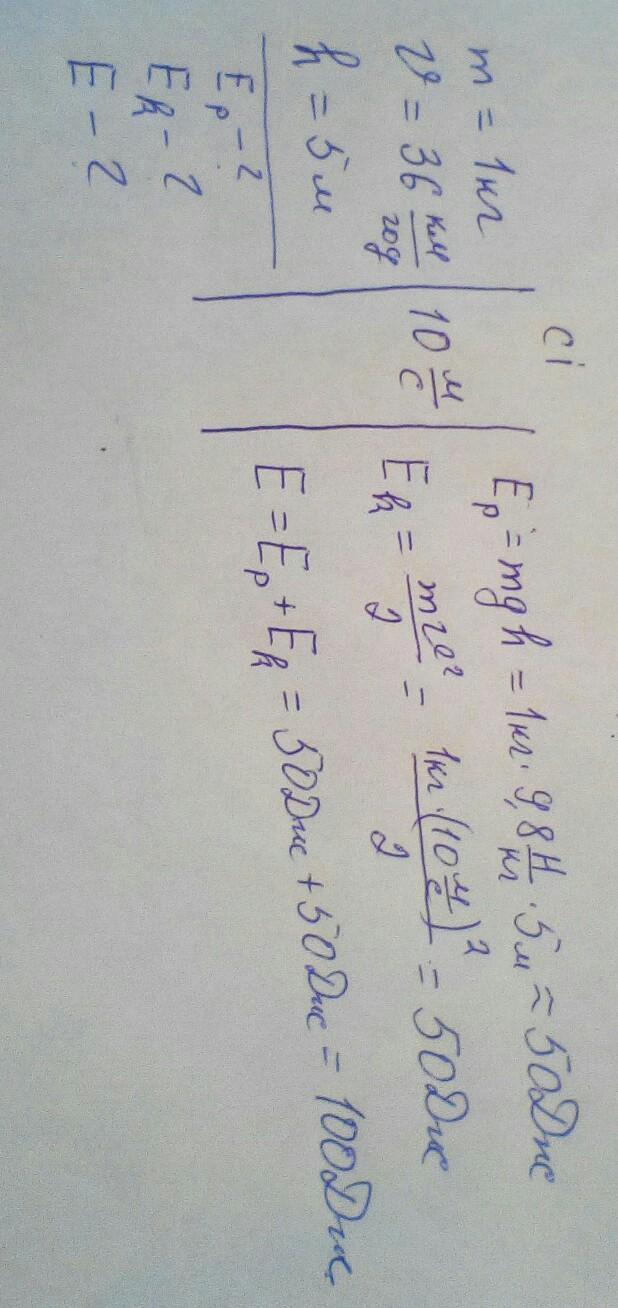 m = 1кг
v = 36 км/год
h = 5м
Eₚ - ?
Eₖ - ?
E - ?
СІ
10 м/с
Eₚ = mgh = 1кг · 9,8 Н/кг · 5м ≈ 50Дж
Eₖ = mv²/2 = 1кг·(10 м/с)²/2 = 50Дж
E = Eₚ + Eₖ = 50Дж + 50Дж = 100Дж.